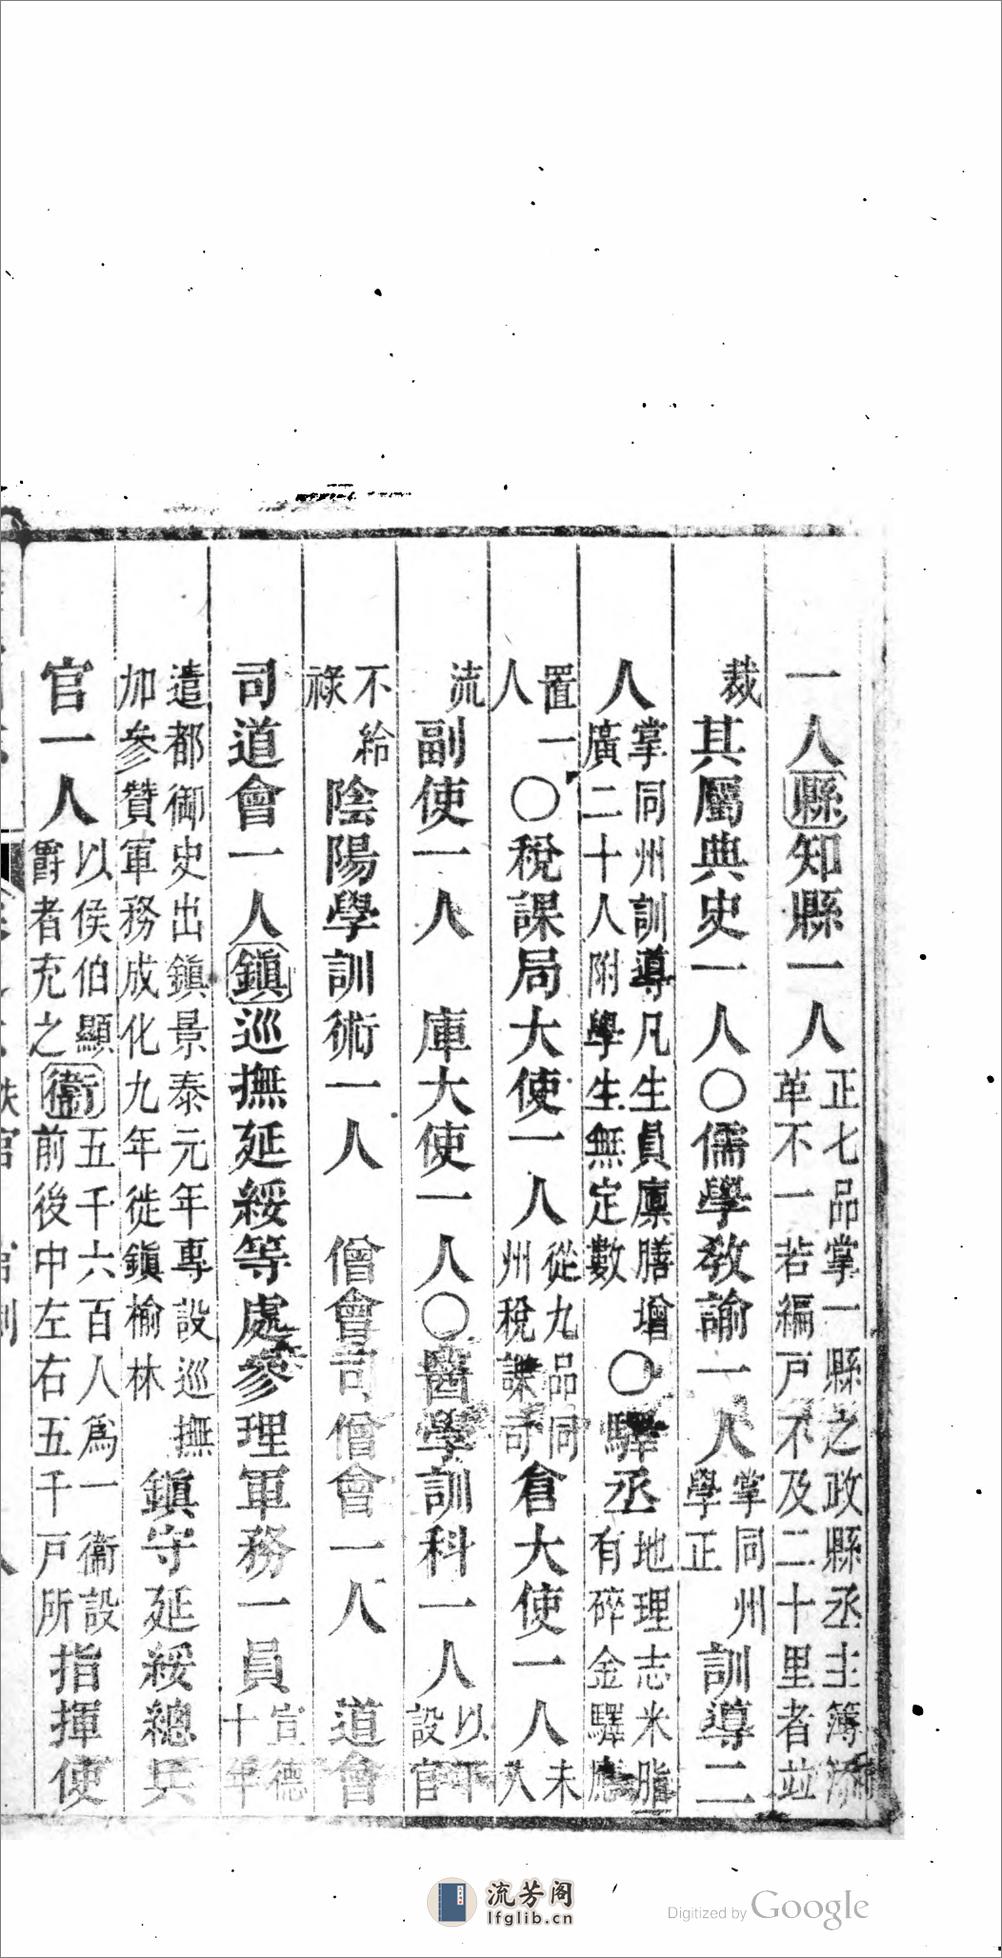 一人縣知縣一人正七品掌一縣之政縣丞主簿添革不一若編戸不及二十里者並
裁其屬典史一人〇儒學敎諭一人掌同州學正訓導二
人掌同州訓導凡生員廪膳增廣二十人附學生無定數〇驛丞地理志米脂有碎金驛應
置一人〇稅課局大使一人從九品同州稅課司倉大使一人未入
流副使一人 庫大使一人〇醫學訓科一人以下設官
不給祿陰陽學訓術一人 僧會司僧會一人 道會
司道會一人鎮巡撫延綏等處參理軍務一員宣德十年
遣都御史出鎮景泰元年專設巡撫加參贊軍務成化九年徙鎮榆林鎮守延綏總兵
官一人以侯伯顯爵者充之衞五千六百人爲一衞設前後中左右五千戸所指揮使
流芳阁
lfglib.cn
Digitized by Google